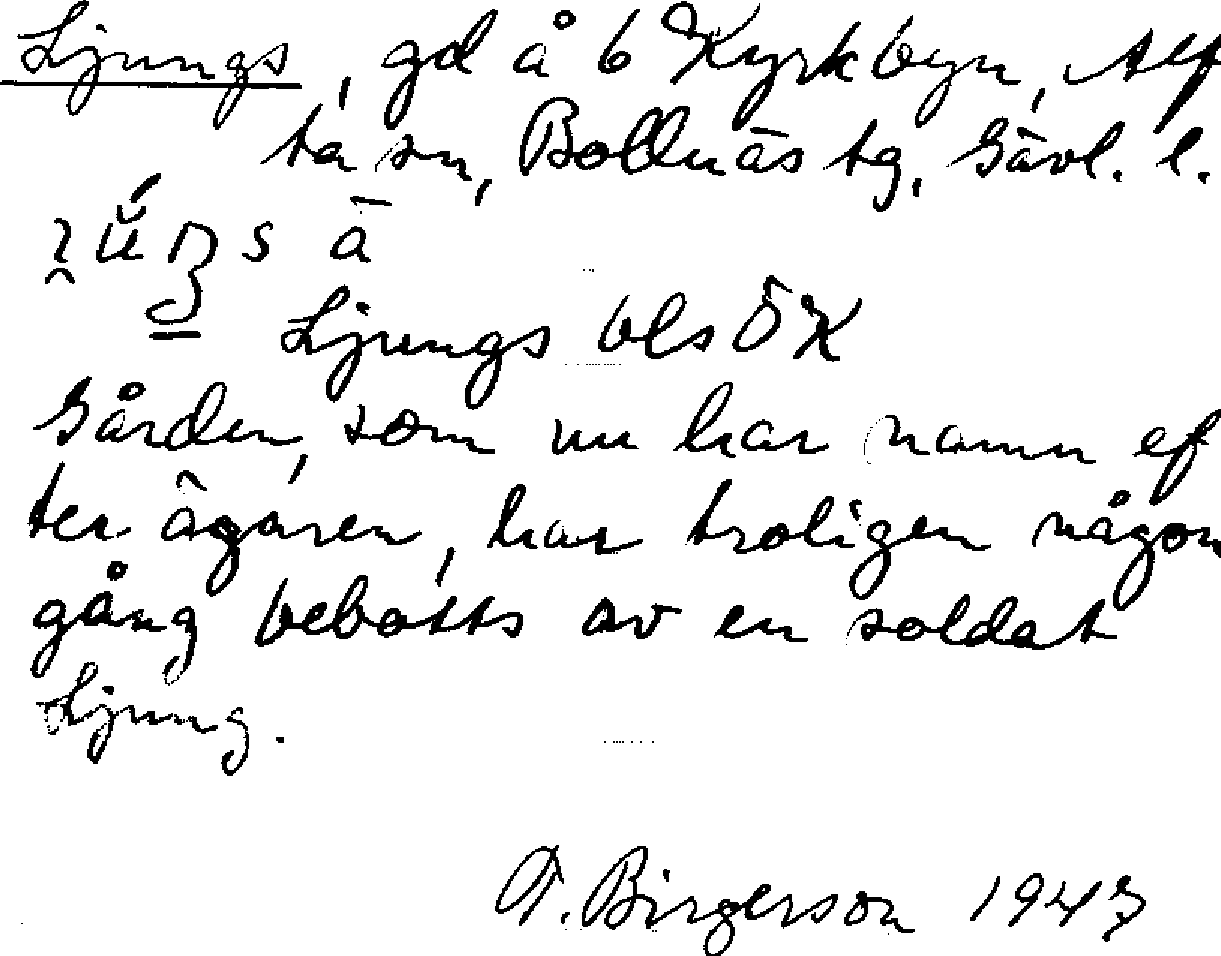 Ljungs, gd å 6 Kyrkbyn, Alf
ta sn, Bollnäs tg, Gävl. l.
Ljungs bls ÖK
Gården, som nu har namn ef
ter ägaren, har troligen någon
gång bebotts av en soldat
Ljung.
Birgerson 1943